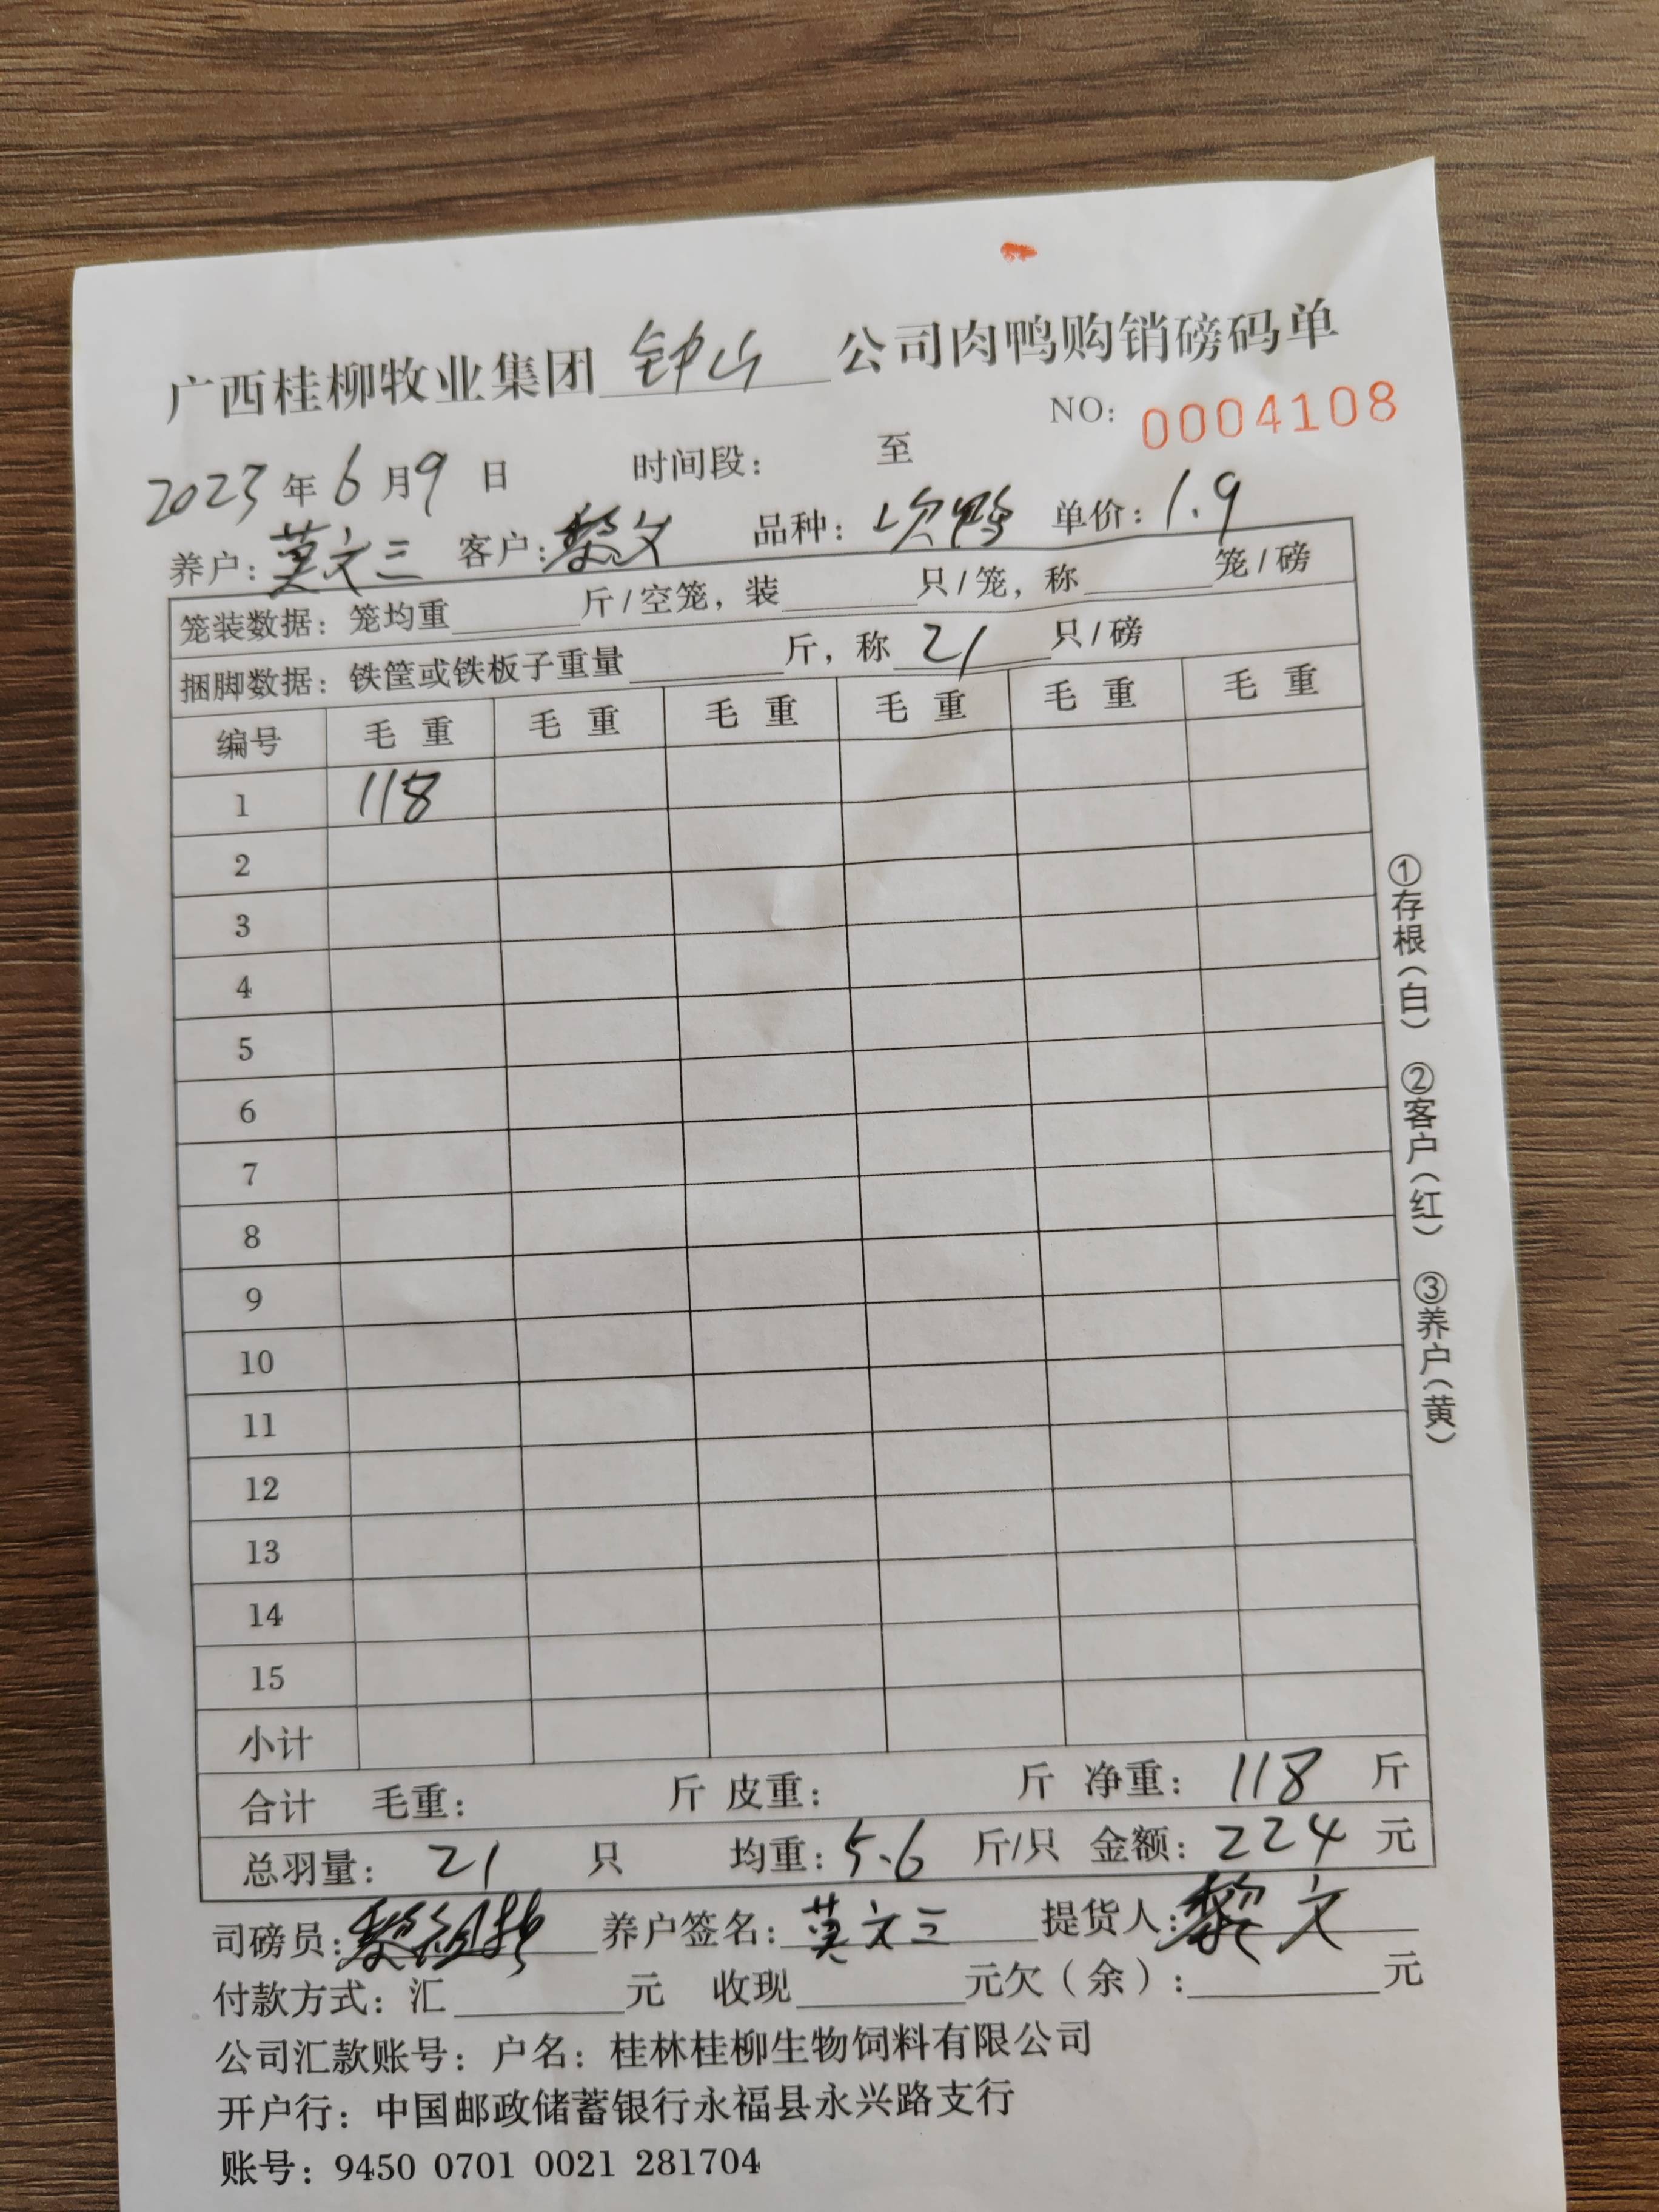 广西桂柳牧业集团 钟山 公司肉鸭购销磅码单
NO: 0004108
2023年6月9日 时间段: 至
养户: 莫文三 客户: 黎文 品种: 次鸭 单价: 1.9
笼装数据: 笼均重 斤/空笼, 装 只/笼, 称 笼/磅
捆脚数据: 铁筐或铁板子重量 斤, 称 21 只/磅
编号 毛重 毛重 毛重 毛重 毛重 毛重
1 118
2
3
4
5
6
7
8
9
10
11
12
13
14
15
小计
合计 毛重: 斤 皮重: 斤 净重: 118 斤
总羽量: 21 只 均重: 5.6 斤/只 金额: 224 元
司磅员: 养户签名: 莫文三 提货人: 黎文
付款方式: 汇 元 收现 元欠(余): 元
公司汇款账号: 户名: 桂林桂柳生物饲料有限公司
开户行: 中国邮政储蓄银行永福县永兴路支行
账号: 9450 0701 0021 281704
①存根(白) ②客户(红) ③养户(黄)